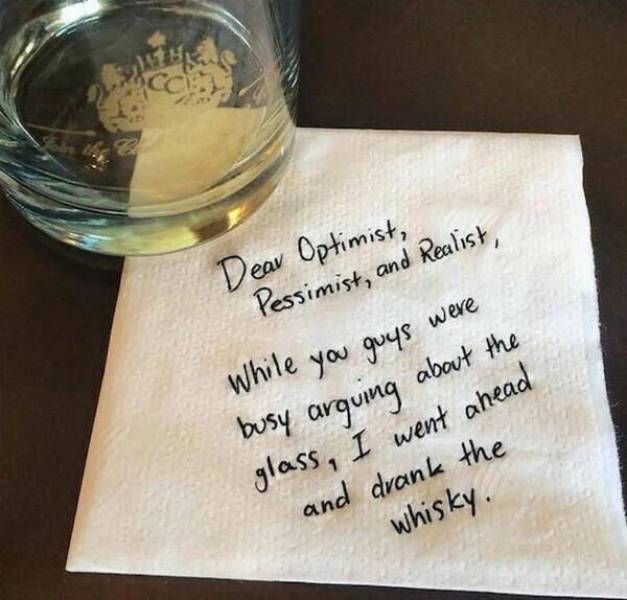 CC
Join the
Dear Optimist,
Pessimist, and Realist,
While you guys were
busy arguing about the
glass, I went ahead
and drank the
whisky.